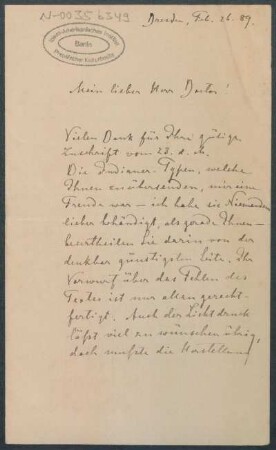 N-0035 b 349
Ibero-Amerikanisches Institut
Berlin
Preußischer Kulturbesitz
Dresden, Feb. 26. 89.
Mein lieber Herr Doctor!
Vielen Dank für Ihre gütige
Zuschrift vom 23. d. M.
Die Indianer-Typen, welche
Ihnen zu übersenden, mir eine
Freude war – ich habe sie Niemandem
lieber behändigt, als gerade Ihnen –
beurtheilen Sie darin von der
denkbar günstigsten Seite. Ihr
Vorwurf über das Fehlen des
Textes ist nur allen gerecht-
fertigt. Auch der Lichtdruck
läßt viel zu wünschen übrig,
doch mußte die Herstellung